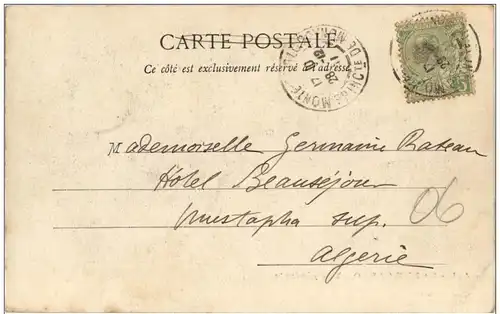 CARTE POSTALE
Ce côté est exclusivement réservé à l'adresse
Mademoiselle Germaine Rateau
Hôtel Beauséjour
Mustapha sup.
Algérie
06